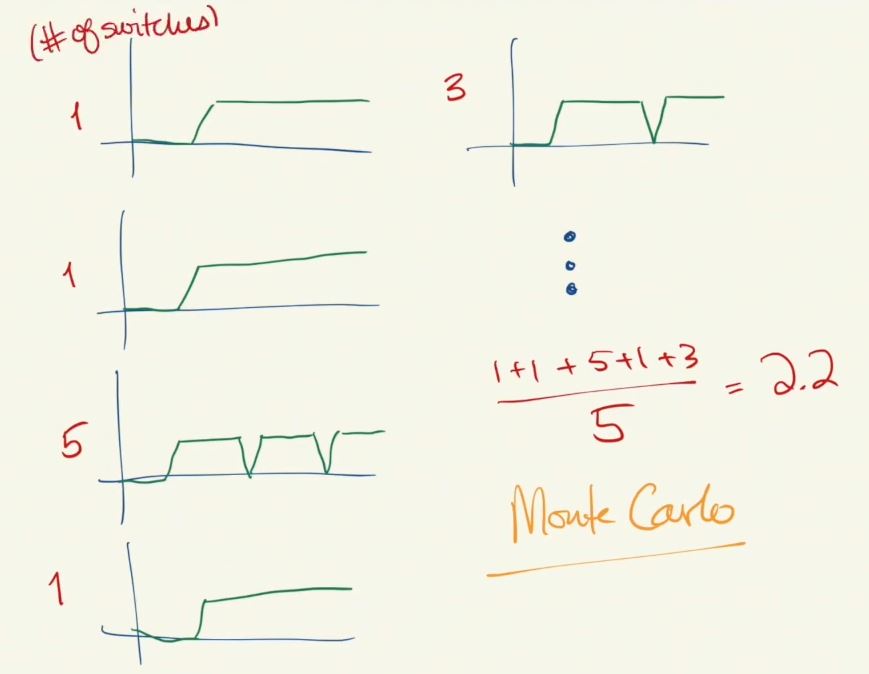 (# of switches)
1
1
5
1
3
1+1+5+1+3
5
= 2.2
Monte Carlo